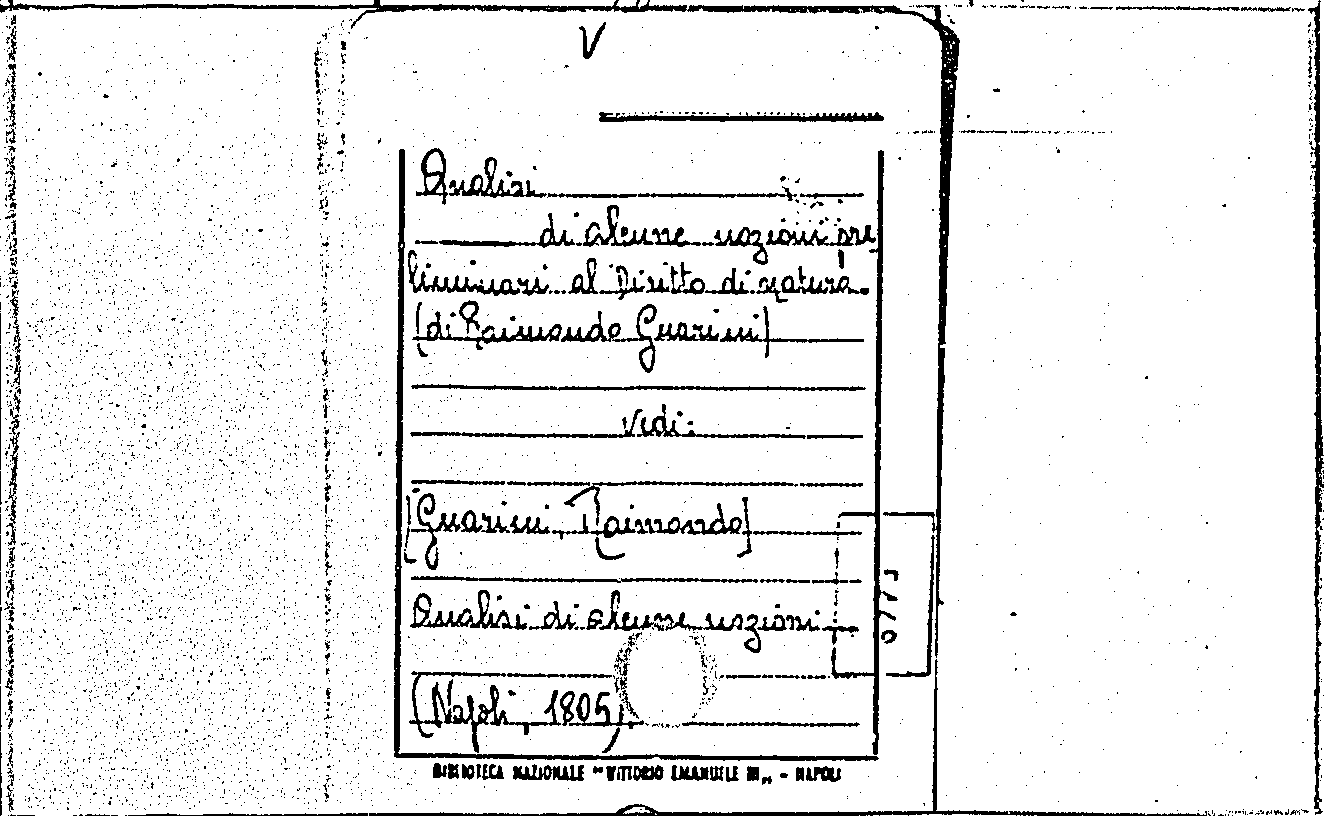 V
Analisi
di alcune nozioni pre
liminari al Diritto di natura.
(di Raimondo Guarini)
vedi:
[Guarini, Raimondo]
Analisi di alcune nozioni...
(Napoli, 1805).
BIBLIOTECA NAZIONALE "VITTORIO EMANUELE III„ - NAPOLI